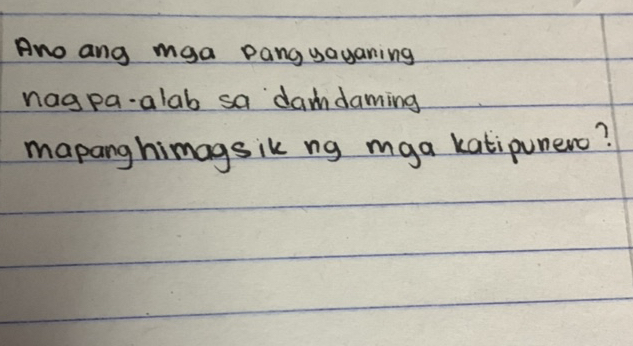 Ano ang mga pangyayaning
nagpa-alab sa damdaming
mapanghimagsik ng mga katipunero?